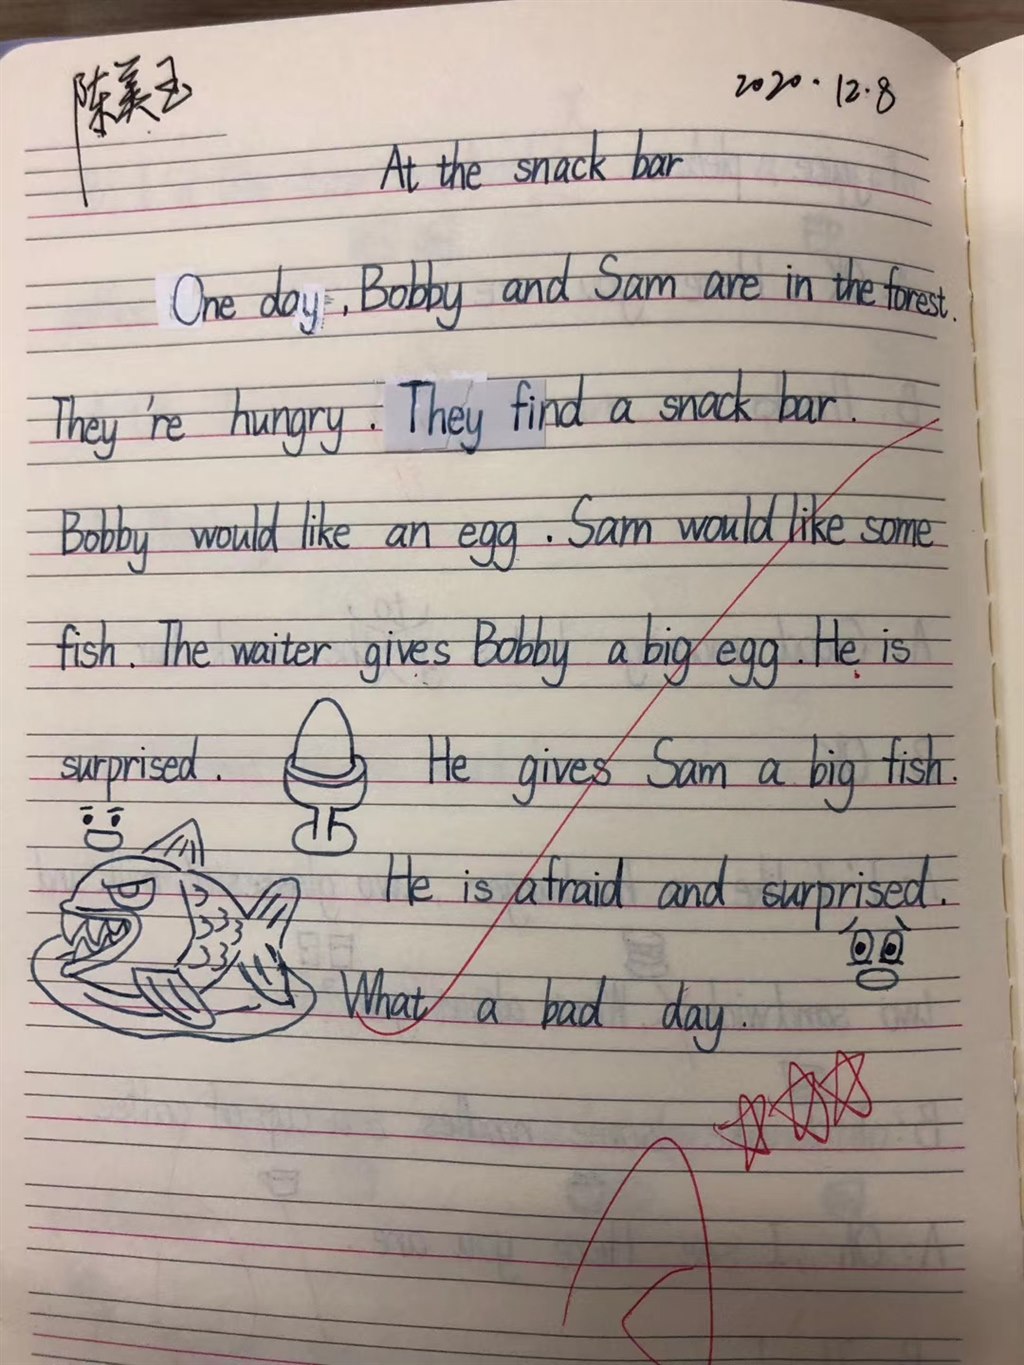 陈美玉
2020.12.8
At the snack bar
One day, Bobby and Sam are in the forest.
They're hungry. They find a snack bar.
Bobby would like an egg. Sam would like some
fish. The waiter gives Bobby a big egg. He is
surprised. He gives Sam a big fish.
He is afraid and surprised.
What a bad day.
A